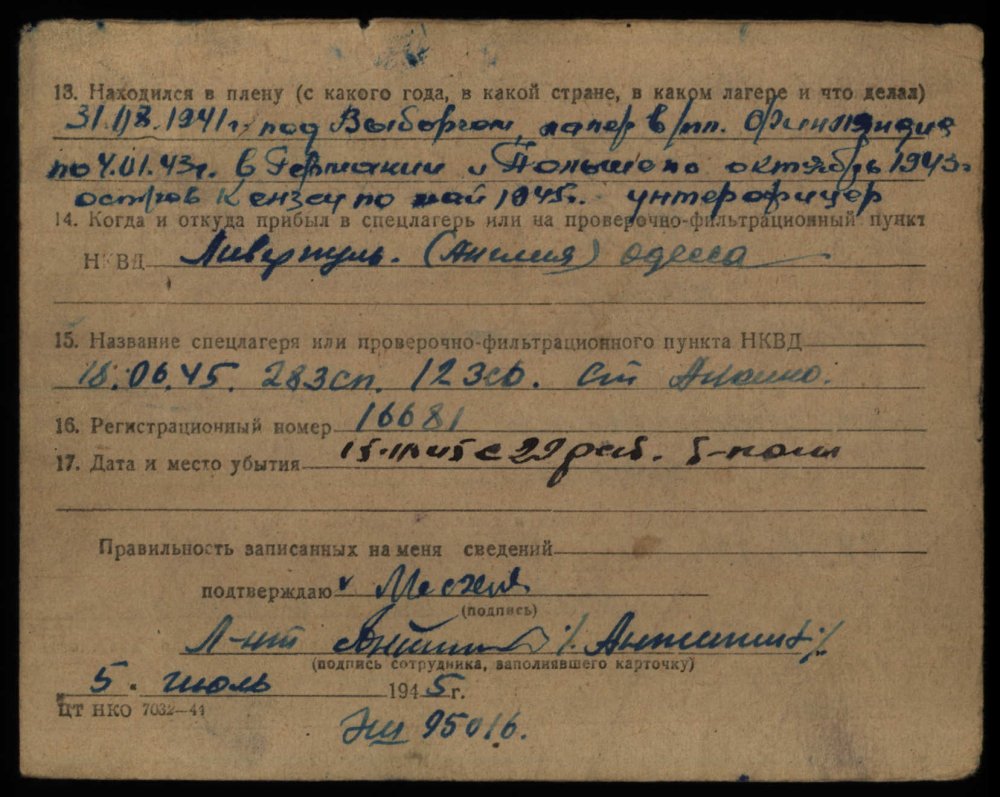 13. Находился в плену (с какого года, в какой стране, в каком лагере и что делал)
31.08.1941г. под Выборгом, лагер в/пл. Финляндия
по 4.01.43г. в Германии и Польше по октябрь 1943г
остров по май 1945г. унтерофицер
14. Когда и откуда прибыл в спецлагерь или на проверочно-фильтрационный пункт
НКВД Ливерпуль. (Англия) Одесса
15. Название спецлагеря или проверочно-фильтрационного пункта НКВД
18.06.45. 283сп. 12 зсд. ст
16. Регистрационный номер 16681
17. Дата и место убытия с 29 раб.
Правильность записанных на меня сведений
подтверждаю
(подпись)
Л-нт
(подпись сотрудника, заполнявшего карточку)
5. июль 1945г.
ЦТ НКО 7032—44
95016.